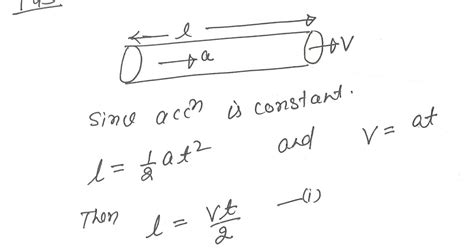 l
a
V
Since accⁿ is constant.
l = 1/2 at² and V = at
Then l = Vt/2 —(i)